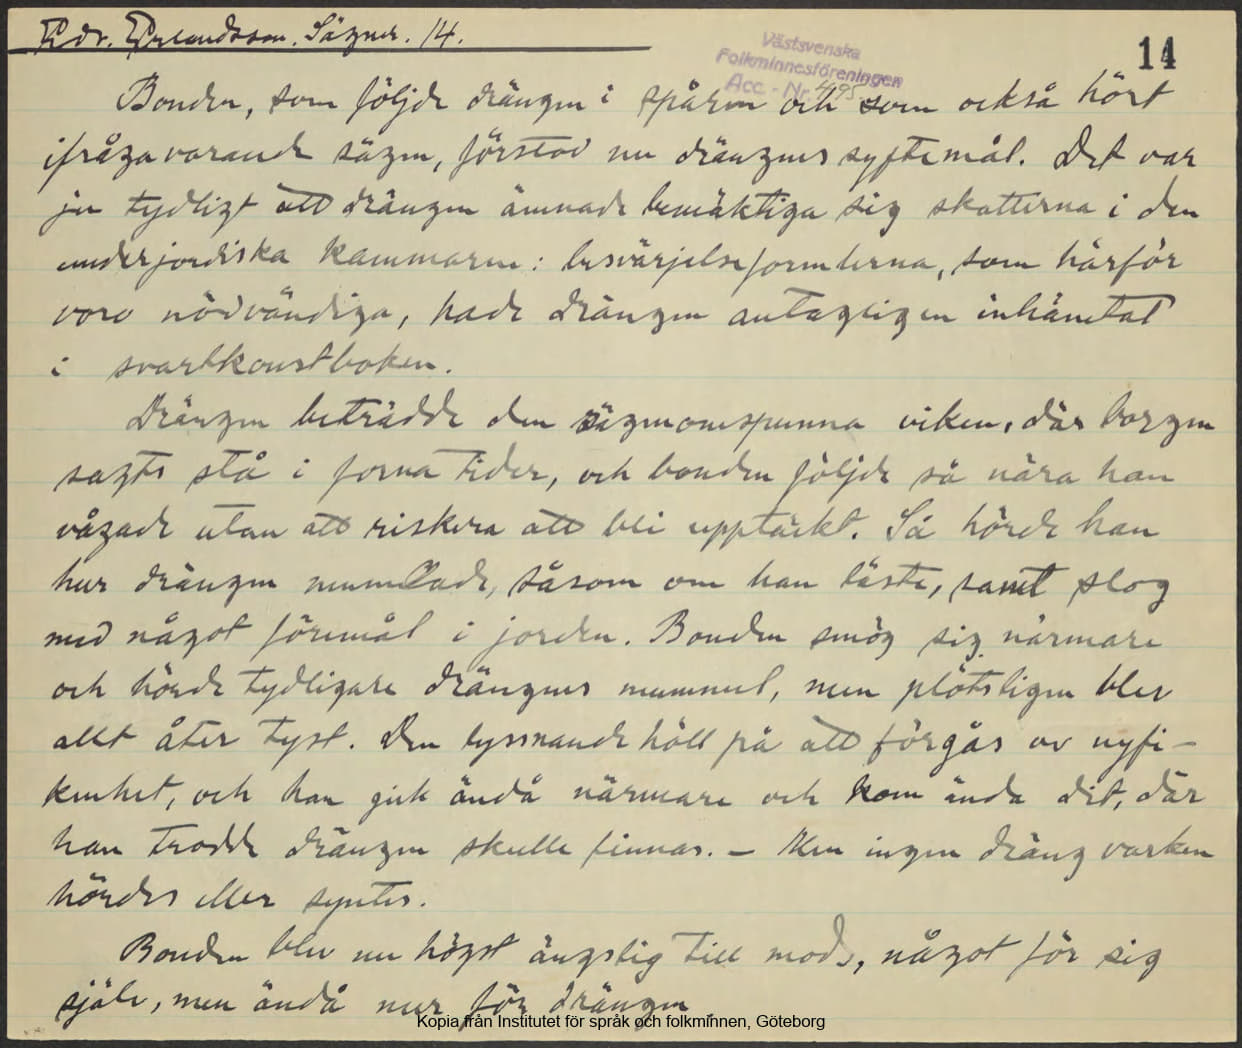 Edv. Erlandsson. Sägner. 14.
14
Västsvenska
Folkminnesföreningen
Acc - Nr.
Bonden, som följde drängen i spåren och som också hört
ifrågavarande sägen, förstod nu drängens syftemål. Det var
ju tydligt att drängen ämnade bemäktiga sig skatterna i den
underjordiska kammaren: besvärjelseformlerna, som härför
voro nödvändiga, hade drängen antagligen inhämtat
i svartkonstboken.
Drängen beträdde den sägenomspunna viken, där borgen
sagts stå i forna tider, och bonden följde så nära han
vågade utan att riskera att bli upptäckt. Så hörde han
hur drängen mumlade, såsom om han läste, samt slog
med något föremål i jorden. Bonden smög sig närmare
och hörde tydligare drängens mummel, men plötsligen blev
allt åter tyst. Den lyssnande höll på att förgås av nyfi-
kenhet, och han gick ändå närmare och kom ända dit, där
han trodde drängen skulle finnas. – Men ingen dräng varken
hördes eller syntes.
Bonden blev nu högst ängslig till mods, något för sig
själv, men ändå mer för drängen.
Kopia från Institutet för språk och folkminnen, Göteborg